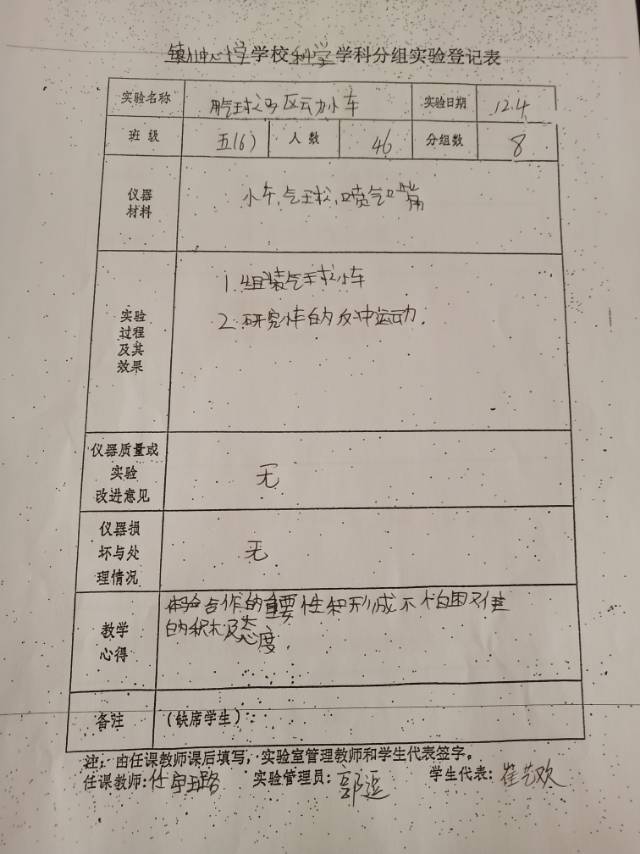 镇中心小学学校科学学科分组实验登记表
实验名称 用气球驱动小车 实验日期 12.4
班级 五(6) 人数 46 分组数 8
仪器
材料
小车,气球,喷气嘴
实验
过程
及其
效果
1.组装气球小车
2.研究小车的反冲运动.
仪器质量或
实验
改进意见
无
仪器损
坏与处
理情况
无
教学
心得
体验合作的重要性和形成不怕困难
的积极态度.
备注 (缺席学生):
注:由任课教师课后填写,实验室管理教师和学生代表签字。
任课教师: 实验管理员: 学生代表:崔艺欢